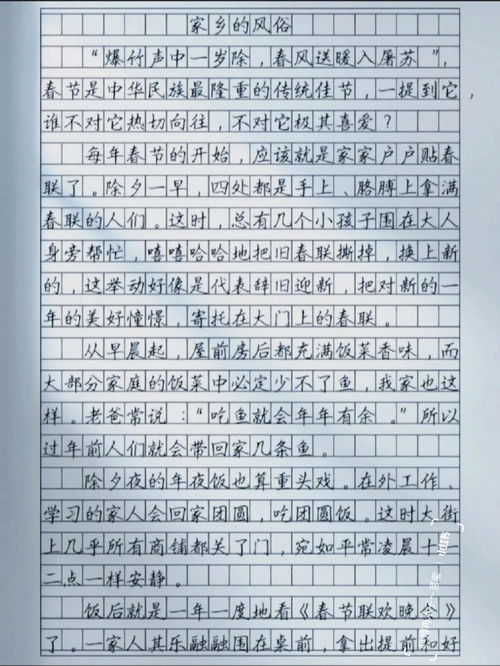 家乡的风俗
“爆竹声中一岁除，春风送暖入屠苏”，
春节是中华民族最隆重的传统佳节，一提到它，
谁不对它热切向往，不对它极其喜爱？
每年春节的开始，应该就是家家户户贴春
联了。除夕一早，四处都是手上、胳膊上拿满
春联的人们。这时，总有几个小孩子围在大人
身旁帮忙，嘻嘻哈哈地把旧春联撕掉，换上新
的，这举动好像是代表辞旧迎新，把对新的一
年的美好憧憬，寄托在大门上的春联。
从早晨起，屋前房后都充满饭菜香味，而
大部分家庭的饭菜中必定少不了鱼，我家也这
样。老爸常说：“吃鱼就会年年有余。”所以
过年前人们就会带回家几条鱼。
除夕夜的年夜饭也算重头戏。在外工作、
学习的家人会回家团圆，吃团圆饭。这时大街
上几乎所有商铺都关了门，宛如平常凌晨十一
二点一样安静。
饭后就是一年一度地看《春节联欢晚会》
了。一家人其乐融融围在桌前，拿出提前和好